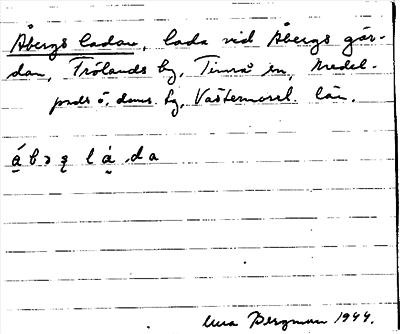 Åbergs ladan, lada vid Åbergs går-
dan, Frölands by, Timrå sn, Medel-
pads ö. doms. fg, Västernorrl. län.
Bergman 1944.